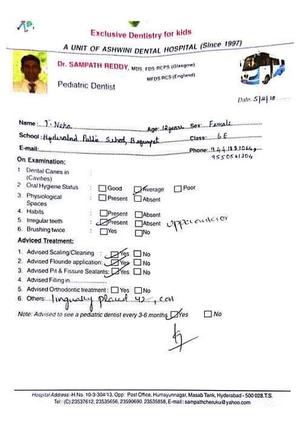 Exclusive Dentistry for kids
A UNIT OF ASHWINI DENTAL HOSPITAL (Since 1997)
Dr. SAMPATH REDDY, MDS, FDS RCPS (Glasgow)
MFDS RCS (England)
Pediatric Dentist
Date: 5/4/18
Name: T. Neha Age: 12 years Sex: Female
School: Hyderabad Public School, Begumpet Class: 6E
E-mail: Phone:
On Examination:
1 Dental Caries in (Cavities) :
2 Oral Hygiene Status : Good Average Poor
3 Physiological Spaces : Present Absent
4. Habits : Present Absent
5. Irregular teeth : Present Absent
6. Brushing twice : Yes No
Adviced Treatment:
1. Advised Scaling/Cleaning : Yes No
2. Advised Flouride application: Yes No
3. Advised Pit & Fissure Sealants: Yes No
4. Advised Filling in
5. Advised Orthodontic treatment : Yes No
6. Others: lingually placed
Note: Advised to see a pediatric dentist every 3-6 months Yes No
Hospital Address -H.No. 10-3-304/13, Opp: Post Office, Humayunnagar, Masab Tank, Hyderabad - 500 028.T.S.
Tel: (C) 23537612, 23535656, 23590690 23535858, E-mail: sampathcheruku@yahoo.com